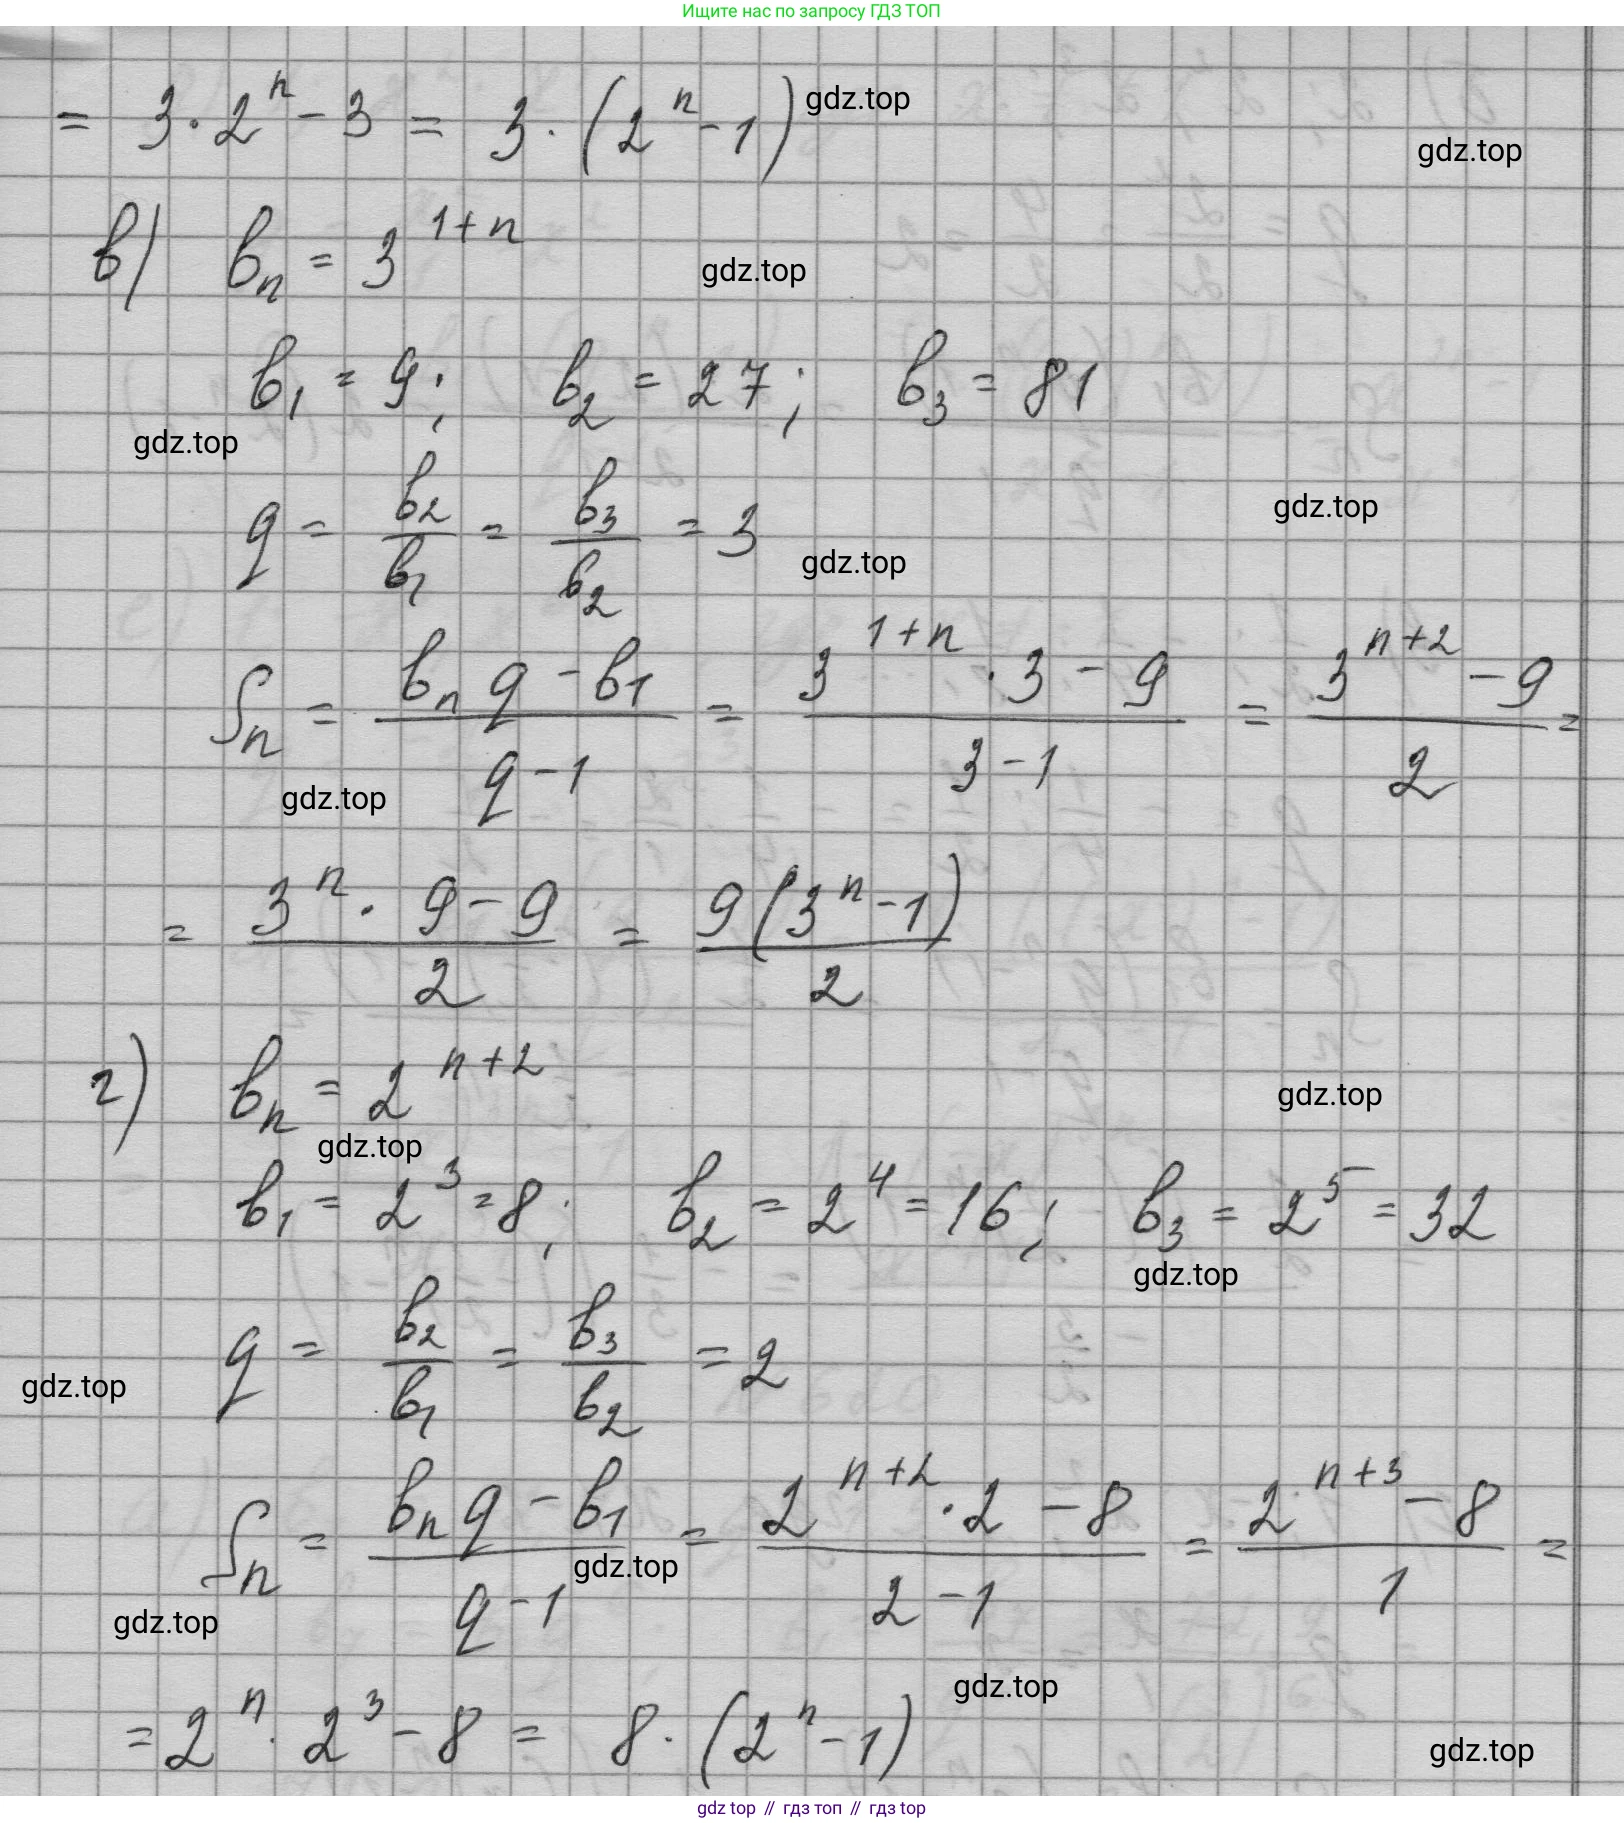 Ищите нас по запросу ГДЗ ТОП
= 3 · 2^n − 3 = 3 · (2^n − 1) gdz.top
gdz.top
в) b_n = 3^{1+n}
gdz.top
b_1 = 9; b_2 = 27; b_3 = 81
gdz.top
q = b_2/b_1 = b_3/b_2 = 3
gdz.top
gdz.top
S_n = (b_n q − b_1)/(q − 1) = (3^{1+n} · 3 − 9)/(3 − 1) = (3^{n+2} − 9)/2 =
gdz.top
= (3^n · 9 − 9)/2 = 9(3^n − 1)/2
г) b_n = 2^{n+2}
gdz.top
gdz.top
b_1 = 2^3 = 8; b_2 = 2^4 = 16; b_3 = 2^5 = 32
gdz.top
q = b_2/b_1 = b_3/b_2 = 2
gdz.top
S_n = (b_n q − b_1)/(q − 1) = (2^{n+2} · 2 − 8)/(2 − 1) = (2^{n+3} − 8)/1 =
gdz.top
gdz.top
gdz.top
= 2^n · 2^3 − 8 = 8 · (2^n − 1)
gdz.top
gdz top // гдз топ // гдз top